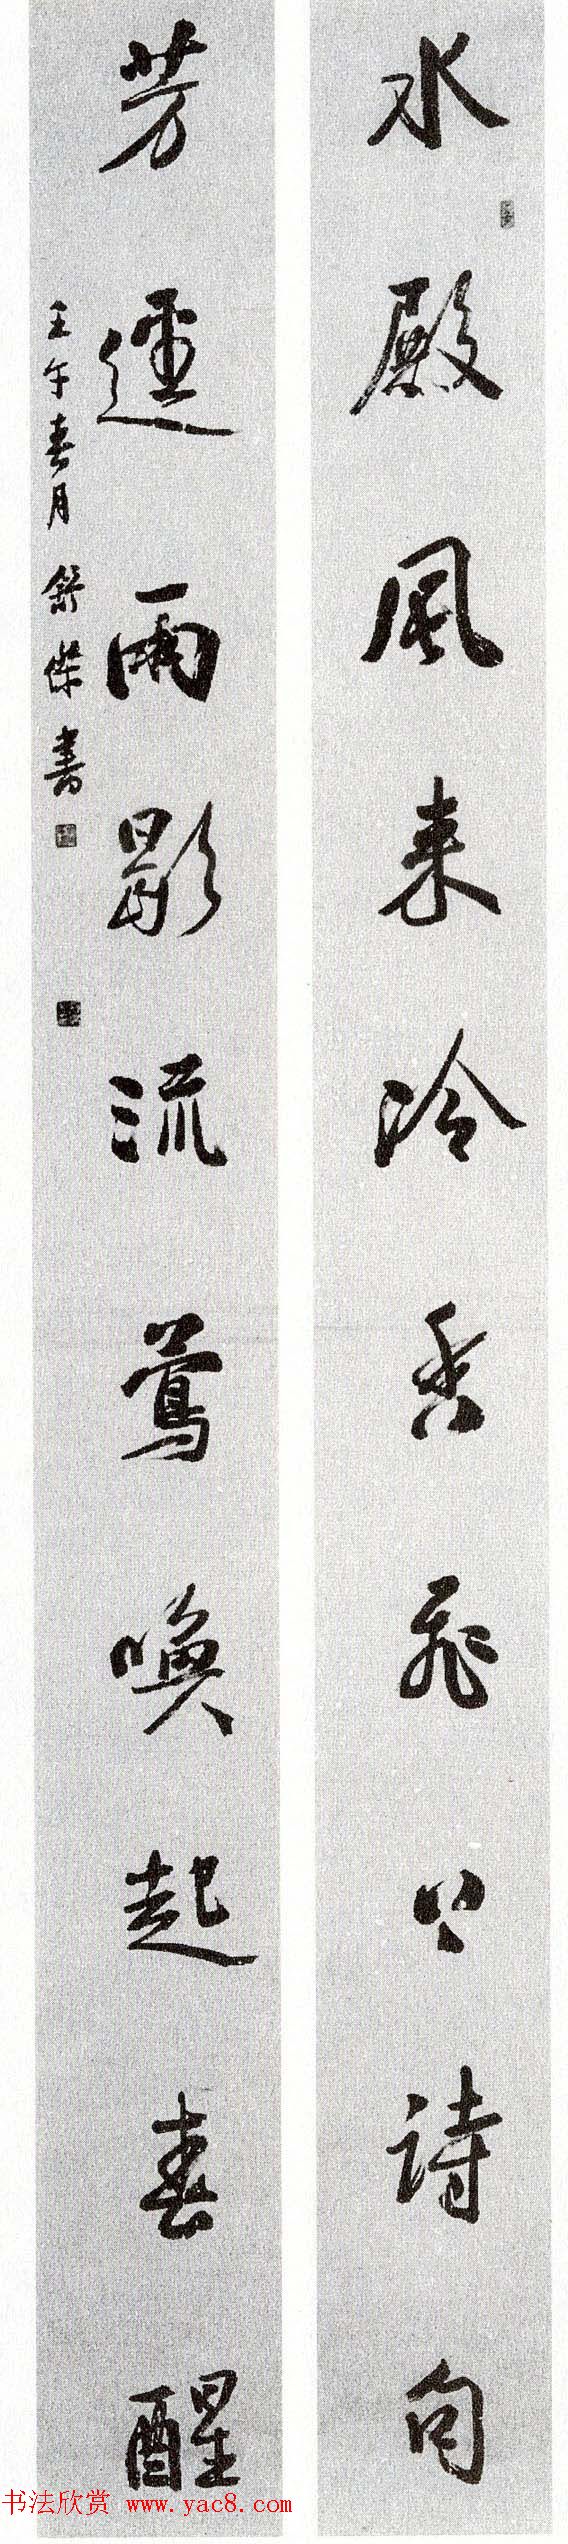 水殿風来冷香飛上詩句
芳逕雨歇流鶯喚起春醒
壬午春月舒傑書
书法欣赏 www.yac8.com